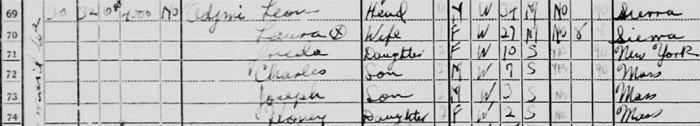 69 30 320 No Adjmi Leon Head M W 37 M No Sierra
70 Laura ⓧ Wife F W 27 M No 8 Sierra
71 Daughter F W 10 S Yes New York
72 Charles Son M W 7 S Yes Mass
73 Joseph Son M W 3 S No Mass
74 Daughter F W 2 S No Mass